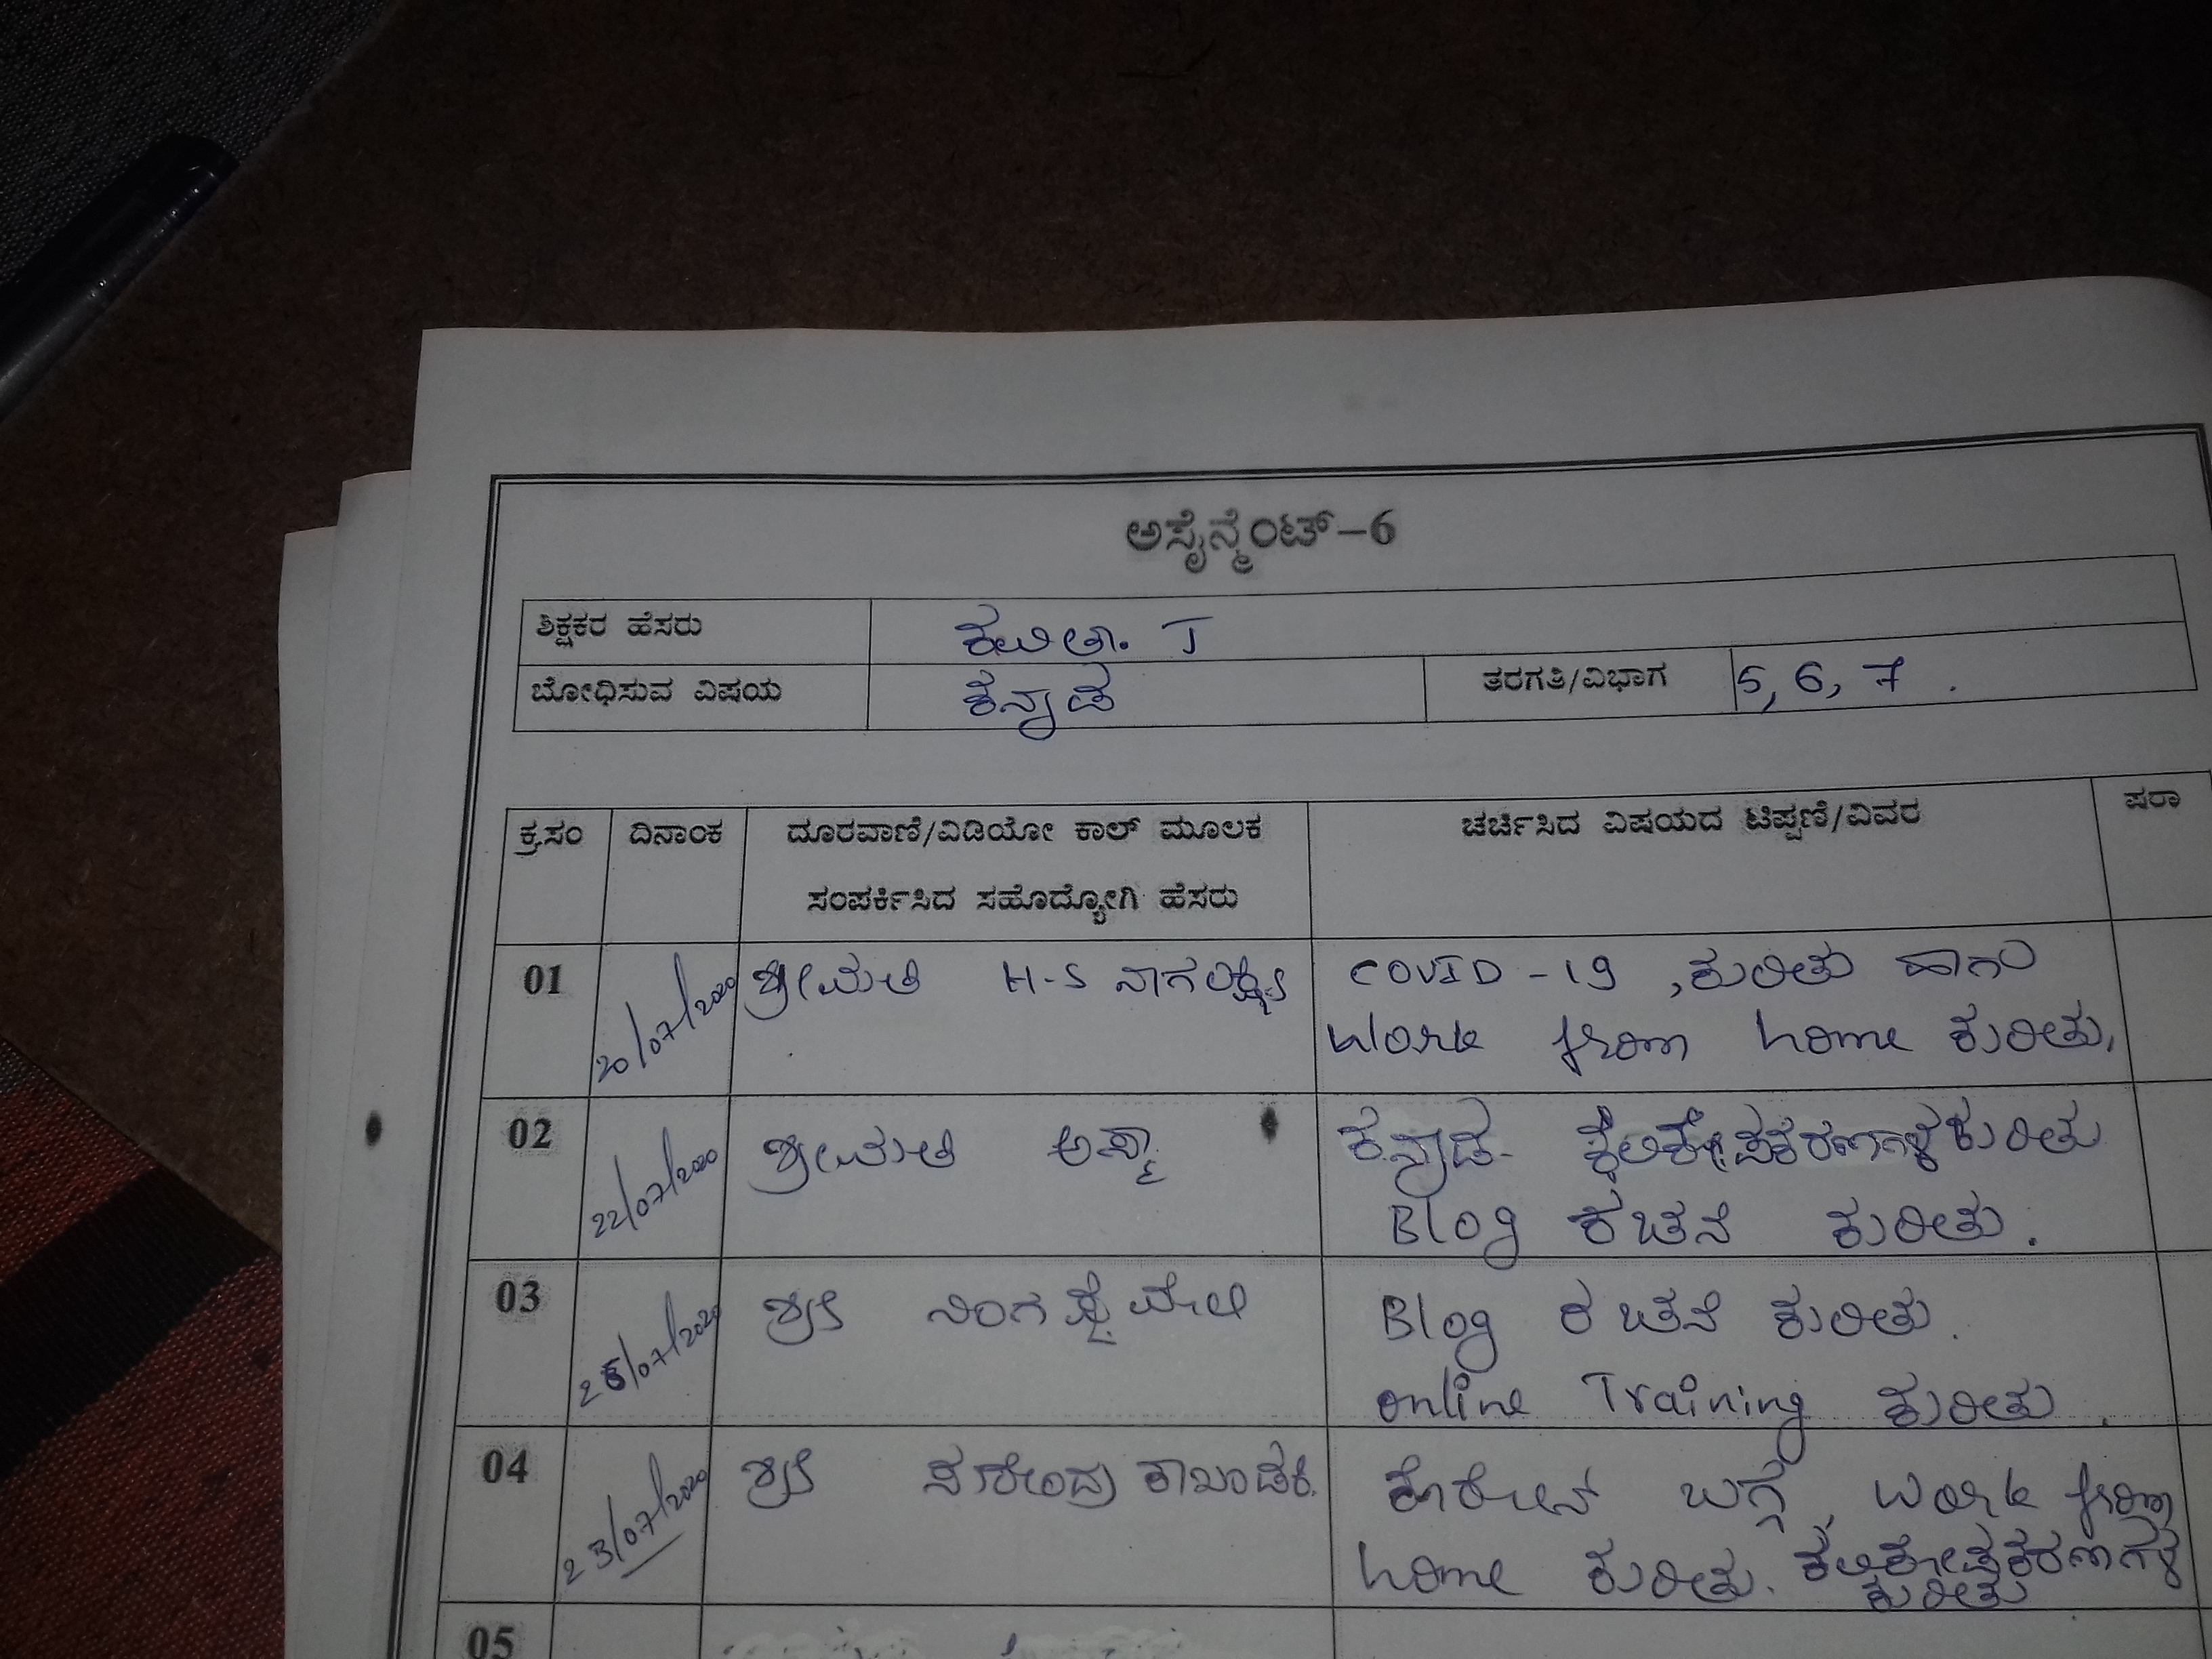 ಅಸೈನ್ಮೆಂಟ್-6
ಶಿಕ್ಷಕರ ಹೆಸರು ಕವಿತಾ. T
ಬೋಧಿಸುವ ವಿಷಯ ಕನ್ನಡ ತರಗತಿ/ವಿಭಾಗ 5, 6, 7 .
ಕ್ರ.ಸಂ ದಿನಾಂಕ ದೂರವಾಣಿ/ವಿಡಿಯೋ ಕಾಲ್ ಮೂಲಕ ಚರ್ಚಿಸಿದ ವಿಷಯದ ಟಿಪ್ಪಣಿ/ವಿವರ ಷರಾ
ಸಂಪರ್ಕಿಸಿದ ಸಹೊದ್ಯೋಗಿ ಹೆಸರು
01 20/07/2020 ಶ್ರೀಮತಿ H-S ನಾಗಲಕ್ಷ್ಮಿ COVID -19 ,ಕುರಿತು ಹಾಗು
Work from home ಕುರಿತು.
02 22/07/2020 ಶ್ರೀಮತಿ ಅಸ್ಮಾ ಕನ್ನಡ- ಕಲಿಕೋಪಕರಣಗಳ ಕುರಿತು
Blog ರಚನೆ ಕುರಿತು.
03 /07/2020 ಶ್ರೀ Blog ರಚನೆ ಕುರಿತು.
online Training ಕುರಿತು .
04 23/07/2020 ಶ್ರೀ ಬಗ್ಗೆ, work from
home ಕುರಿತು. ಕಲಿಕೋಪಕರಣಗಳ
ಕುರಿತು
05